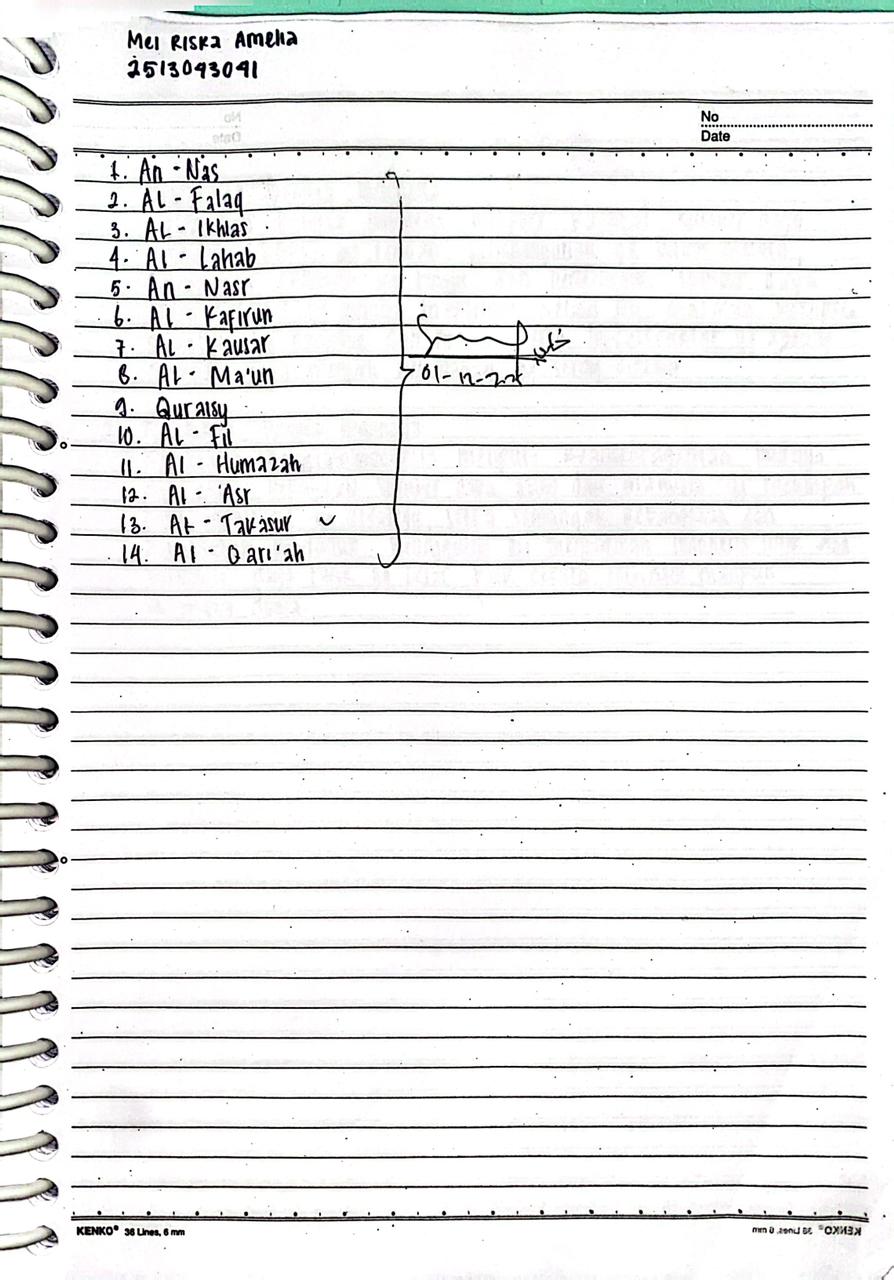 Mei Riska Amelia
2513043041
No
Date
1. An - Nas
2. Al - Falaq
3. Al - Ikhlas
4. Al - Lahab
5. An - Nasr
6. Al - Kafirun
7. Al - Kausar
8. Al - Ma'un
9. Quraisy
10. Al - Fil
11. Al - Humazah
12. Al - 'Asr
13. At - Takasur
14. Al - Qari'ah
KENKO® 36 Lines, 6 mm